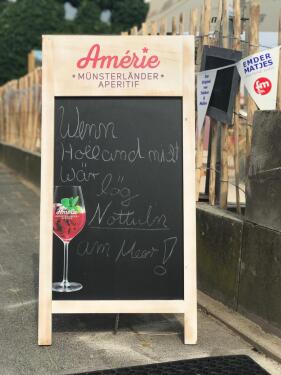 Amérie
MÜNSTERLÄNDER
APERITIF
Wenn
Holland nicht
Wär
läg
Nottuln
am Meer!
Amérie
EMDER
MATJES
fm